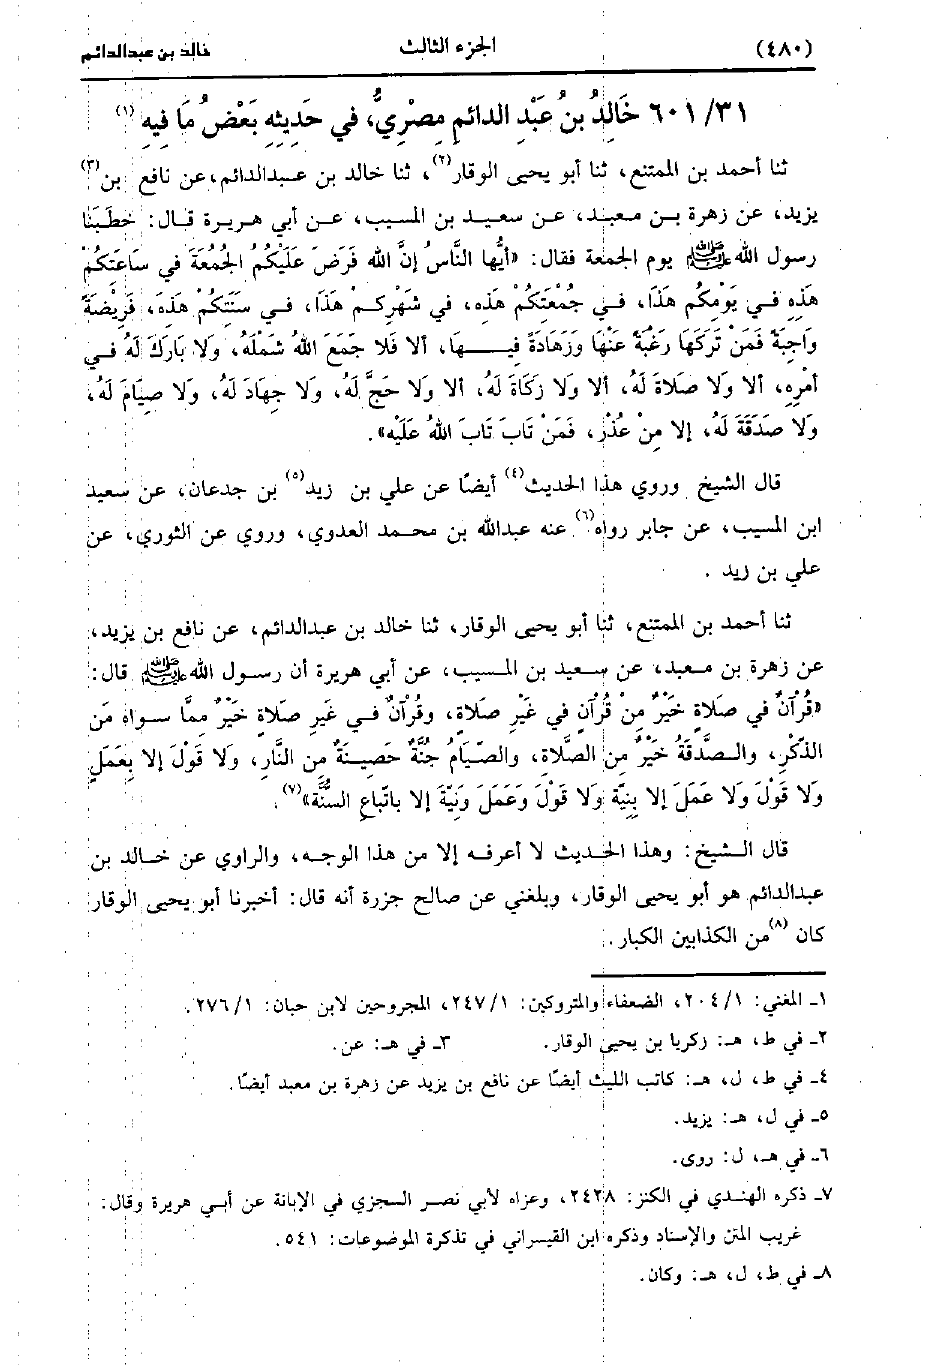 (٤٨٠) الجزء الثالث خالد بن عبدالدائم
٦٠١/٣١ خَالِدُ بنُ عَبْدِ الدائمِ مِصْرِيٌّ، في حَدِيثِهِ بَعْضُ مَا فِيهِ (١)
ثنا أحمد بن الممتنع، ثنا أبو يحيى الوقار(٢)، ثنا خالد بن عبدالدائم، عن نافع بن(٣)
يزيد، عن زهرة بن معبد، عن سعيد بن المسيب، عن أبي هريرة قال: خطبَنَا
رسول الله ﷺ يوم الجمعة فقال: «أيُّها النَّاسُ إنَّ الله فَرَضَ عَلَيْكُم الجُمُعَةَ في سَاعَتِكُمْ
هَذِهِ فِي يَوْمِكُم هَذَا، فِي جُمْعَتِكُمْ هَذِه، في شَهْرِكم هَذَا، فِي سَنَتِكُمْ هَذِه، فَرِيْضَةٌ
وَاجِبَةٌ فَمَنْ تَرَكَهَا رَغْبَةً عَنْهَا وَزَهَادَةً فِيـــهَا، ألا فَلا جَمَعَ اللهُ شَمْلَهُ، وَلا بَارَكَ لَهُ فِي
أمْرِهِ، ألا وَلا صَلاةَ لَهُ، ألا وَلا زَكَاةَ لَهُ، ألا وَلا حَجَّ لَهُ، وَلا جِهَادَ لَهُ، وَلا صِيَامَ لَهُ،
وَلا صَدَقَةَ لَهُ، إلا مِنْ عُذْرٍ، فَمَنْ تَابَ تَابَ اللهُ عَلَيْه».
قال الشيخ وروي هذا الحديث(٤) أيضًا عن علي بن زيد(٥) بن جدعان، عن سعيد
ابن المسيب، عن جابر رواه(٦) عنه عبدالله بن محمد العدوي، وروي عن الثوري، عن
علي بن زيد .
ثنا أحمد بن الممتنع، ثنا أبو يحيى الوقار، ثنا خالد بن عبدالدائم، عن نافع بن يزيد،
عن زهرة بن معبد، عن سعيد بن المسيب، عن أبي هريرة أن رسول الله ﷺ قال:
«قُرْآنٌ في صَلاةٍ خَيْرٌ مِنْ قُرآنٍ في غَيْرِ صَلاة، وقُرآنٌ فـي غَيرِ صَلاةٍ خَيْرٌ ممَّا سـواه مِنَ
الذِّكْرِ، والـصَّدَقَةُ خَيْرٌ مِن الصَّلاةِ، والصِّيَامُ جُنَّةٌ حَصِينَةٌ مِن النَّارِ، وَلا قَولَ إلا بِعَمَلٍ
وَلا قَوْلَ وَلا عَمَلَ إلا بِنِيَّة وَلا قَوْلَ وَعَمَلَ وَنِيَّةَ إلا باتّبَاعِ السُّنَّة»(٧).
قال الشيخ: وهذا الحديث لا أعرفه إلا من هذا الوجه، والراوي عن خالد بن
عبدالدائم هو أبو يحيى الوقار، وبلغني عن صالح جزرة أنه قال: أخبرنا أبو يحيى الوقار
كان (٨)من الكذابين الكبار.
١ـ المغني: ٢٠٤/١، الضعفاء والمتروكين: ٢٤٧/١، المجروحين لابن حبان: ٢٧٦/١.
٢ـ في ط، هـ: زكريا بن يحيى الوقار. ٣ـ في هـ: عن.
٤ـ في ط، ل، هـ: كاتب الليث أيضًا عن نافع بن يزيد عن زهرة بن معبد أيضًا.
٥ـ في ل، هـ: يزيد.
٦ـ في هـ، ل: روى.
٧ـ ذكره الهندي في الكنز: ٢٤٢٨، وعزاه لأبي نصر السجزي في الإبانة عن أبي هريرة وقال:
غريب المتن والإسناد وذكره ابن القيسراني في تذكرة الموضوعات: ٥٤١.
٨ـ في ط، ل، هـ: وكان.